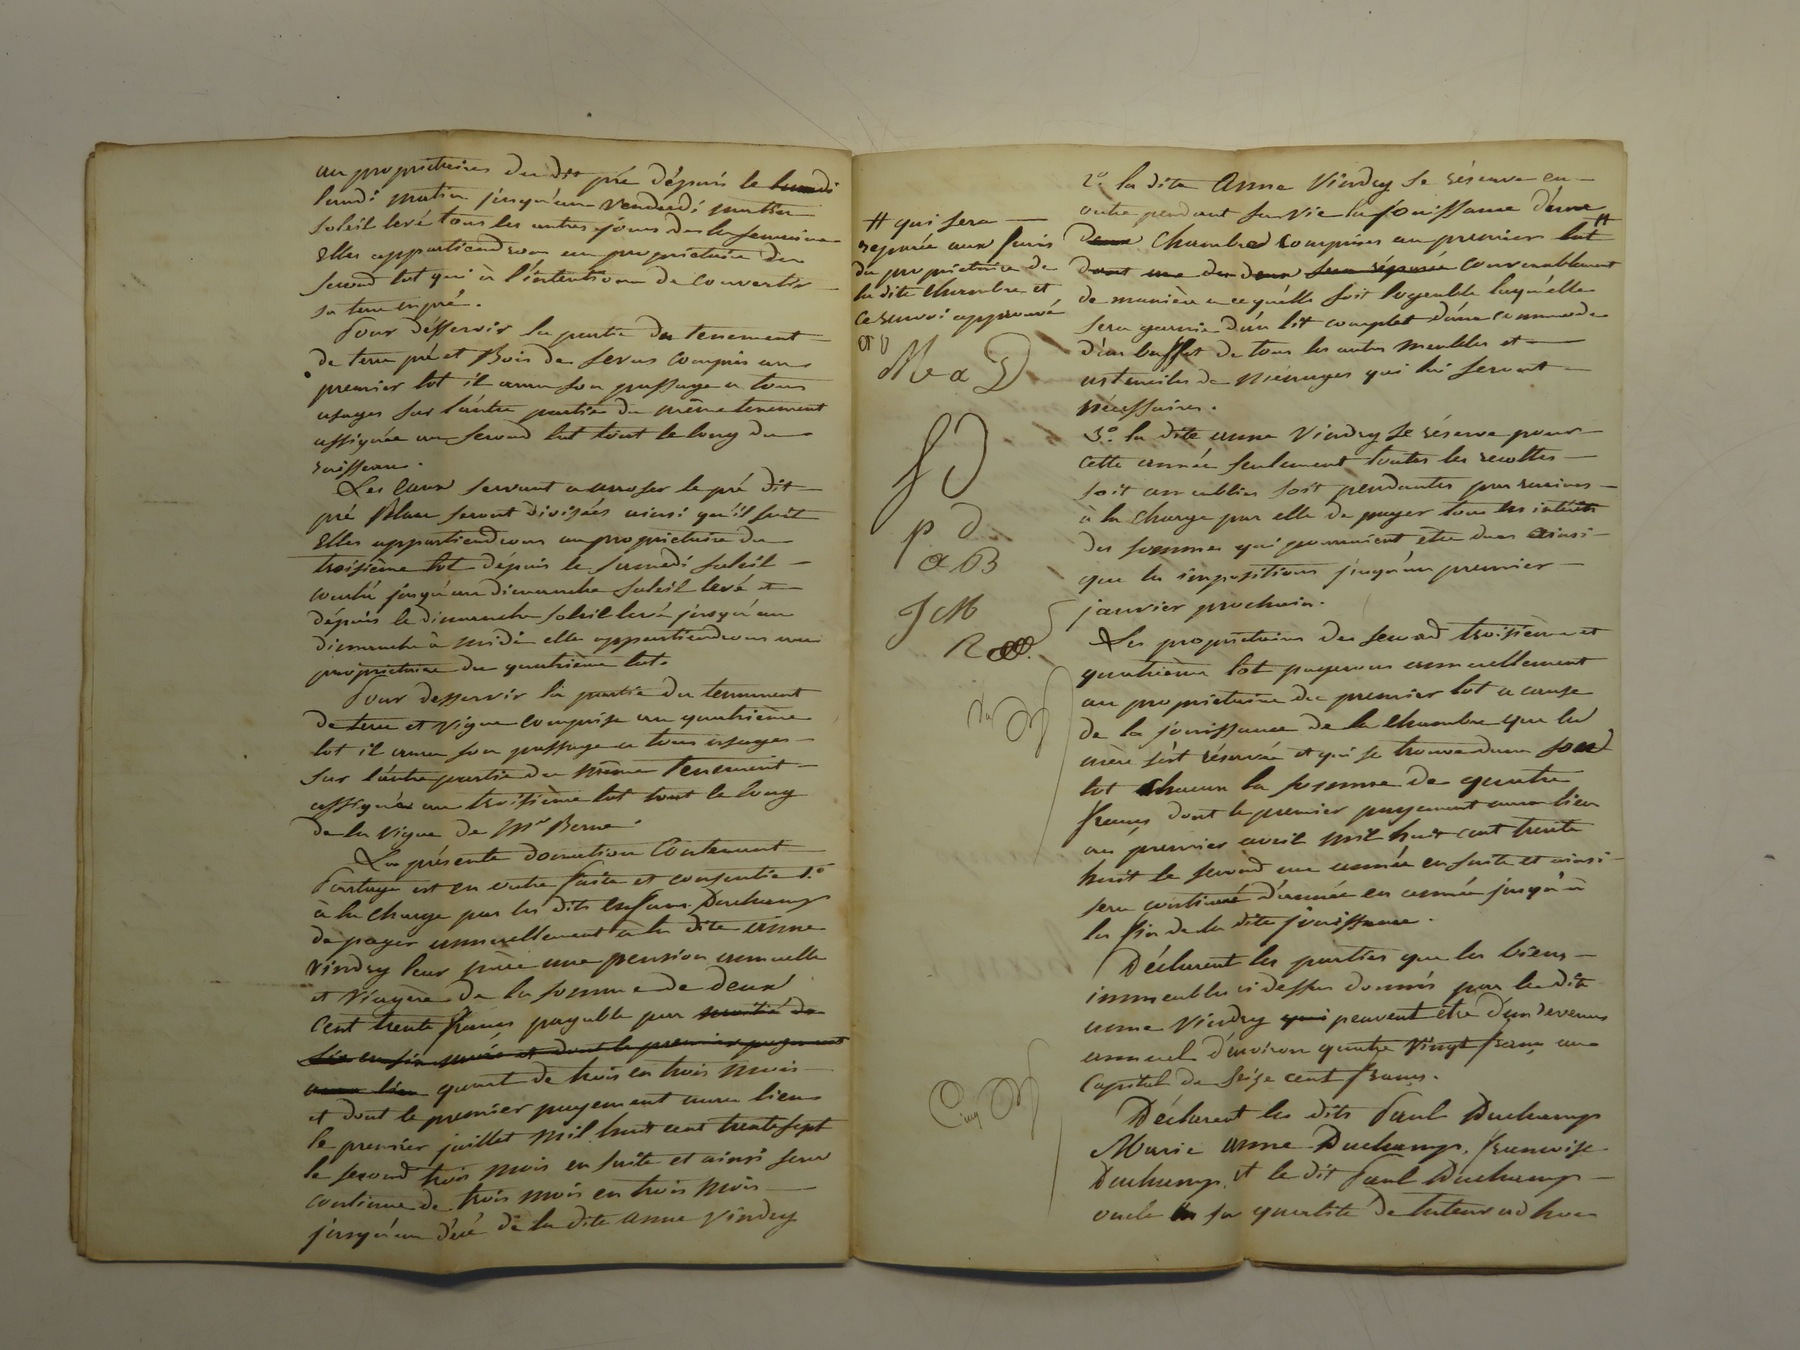 au propriétaires du dit pré dépuis le lundi
lundi matin jusqu'au vendredi matin
soleil levé tous les autres jours de la semaine
Elles appartiendrons au propriétaire du
second lot qui à l'intentiona de convertir
sa terre en pré.
Pour désservir la partie du tenement
de terre pré et Bois de serus compris au
premier lot il aura son passage a tous
usages sur l'autre partie du même tenement
assignée au second lot tout le long du
ruisseau.
Les Eaux servant a arroser le pré dit
pré Blanc seront divisées ainsi qu'il suit
Elles appartiendrons au propriétaire du
troisième lot dépuis le samedi soleil
couché jusqu'au dimanche soleil levé et
dépuis le dimanche soleil levé jusqu'au
dimanche à midi elle appartiendrons au
propriétaire du quatrième lot.
Pour desservir la partie du tenement
de terre et vigne comprise au quatrième
lot il aura son passage a tous usages
sur l'autre partie du même tenement
assignée au troisième lot tout le long
de la vigne de Mr Berne.
La présente donation Contenant
Partage est en outre faite et consentie 1o
à la charge par les dits enfans Duchamp
de payer annuellement à la dite anne
Vindry leur mère une pension annuelle
et viagère de la somme de deux
Cent trente francs payable par moitié de
six en six mois et dont le premier payement
aura lieu quart de trois en trois mois
et dont le premier payement aura lieu
le premier juillet mil huit cent trente sept
le second trois mois en suite et ainsi sera
continue de trois mois en trois mois
jusqu'au décé de la dite anne Vindry
# qui sera
reparée aux frais
du propriétaire de
la dite chambre et
ce renvoi approuvé
M a D
f D
p D
a B
J M
2o la dite Anne Vindry se réserve en
outre pendant sa vie la jouissance d'une #
deux Chambred comprises au premier lot
dont une des deux sera réparée convenablement
de manière a ce qu'elle soit logeable laquelle
sera garnie d'un lit complet d'une commode
d'un buffet de tous les autres meubles et
ustenciles de ménages qui lui seront
nécessaires.
3o la dite anne Vindry se réserve pour
cette année seulement toutes les recoltes
soit ameublies soit pendantes par racines
à la charge par elle de payer tous les intérêts
des sommes qui pourraient etre dues ainsi
que les impositions jusqu'au premier
janvier prochain.
Les propriétaires des second troisième et
quatrième lot payerons annuellement
au propriétaire du premier lot a cause
de la jouissance de la chambre que la
mère s'est réservée et qui se trouve dans son
lot Chacun la somme de quatre
francs dont le premier payement aura lieu
au premier avril mil huit cent trente
huit le second une année en suite et ainsi
sera continué d'année en année jusqu'à
la fin de la dite jouissance.
Déclarent les parties que les biens
immeubles ci dessus donnés par la dite
anne Vindry qui peuvent etre d'un revenu
annuel d'environ quatre vingt francs au
Capital de seize cent francs.
Déclarent les dits Paul Duchamp
Marie anne Duchamp, françoise
Duchamp, et le dit Paul Duchamp
oncle en sa qualité de tuteur ad hoc
Cinq